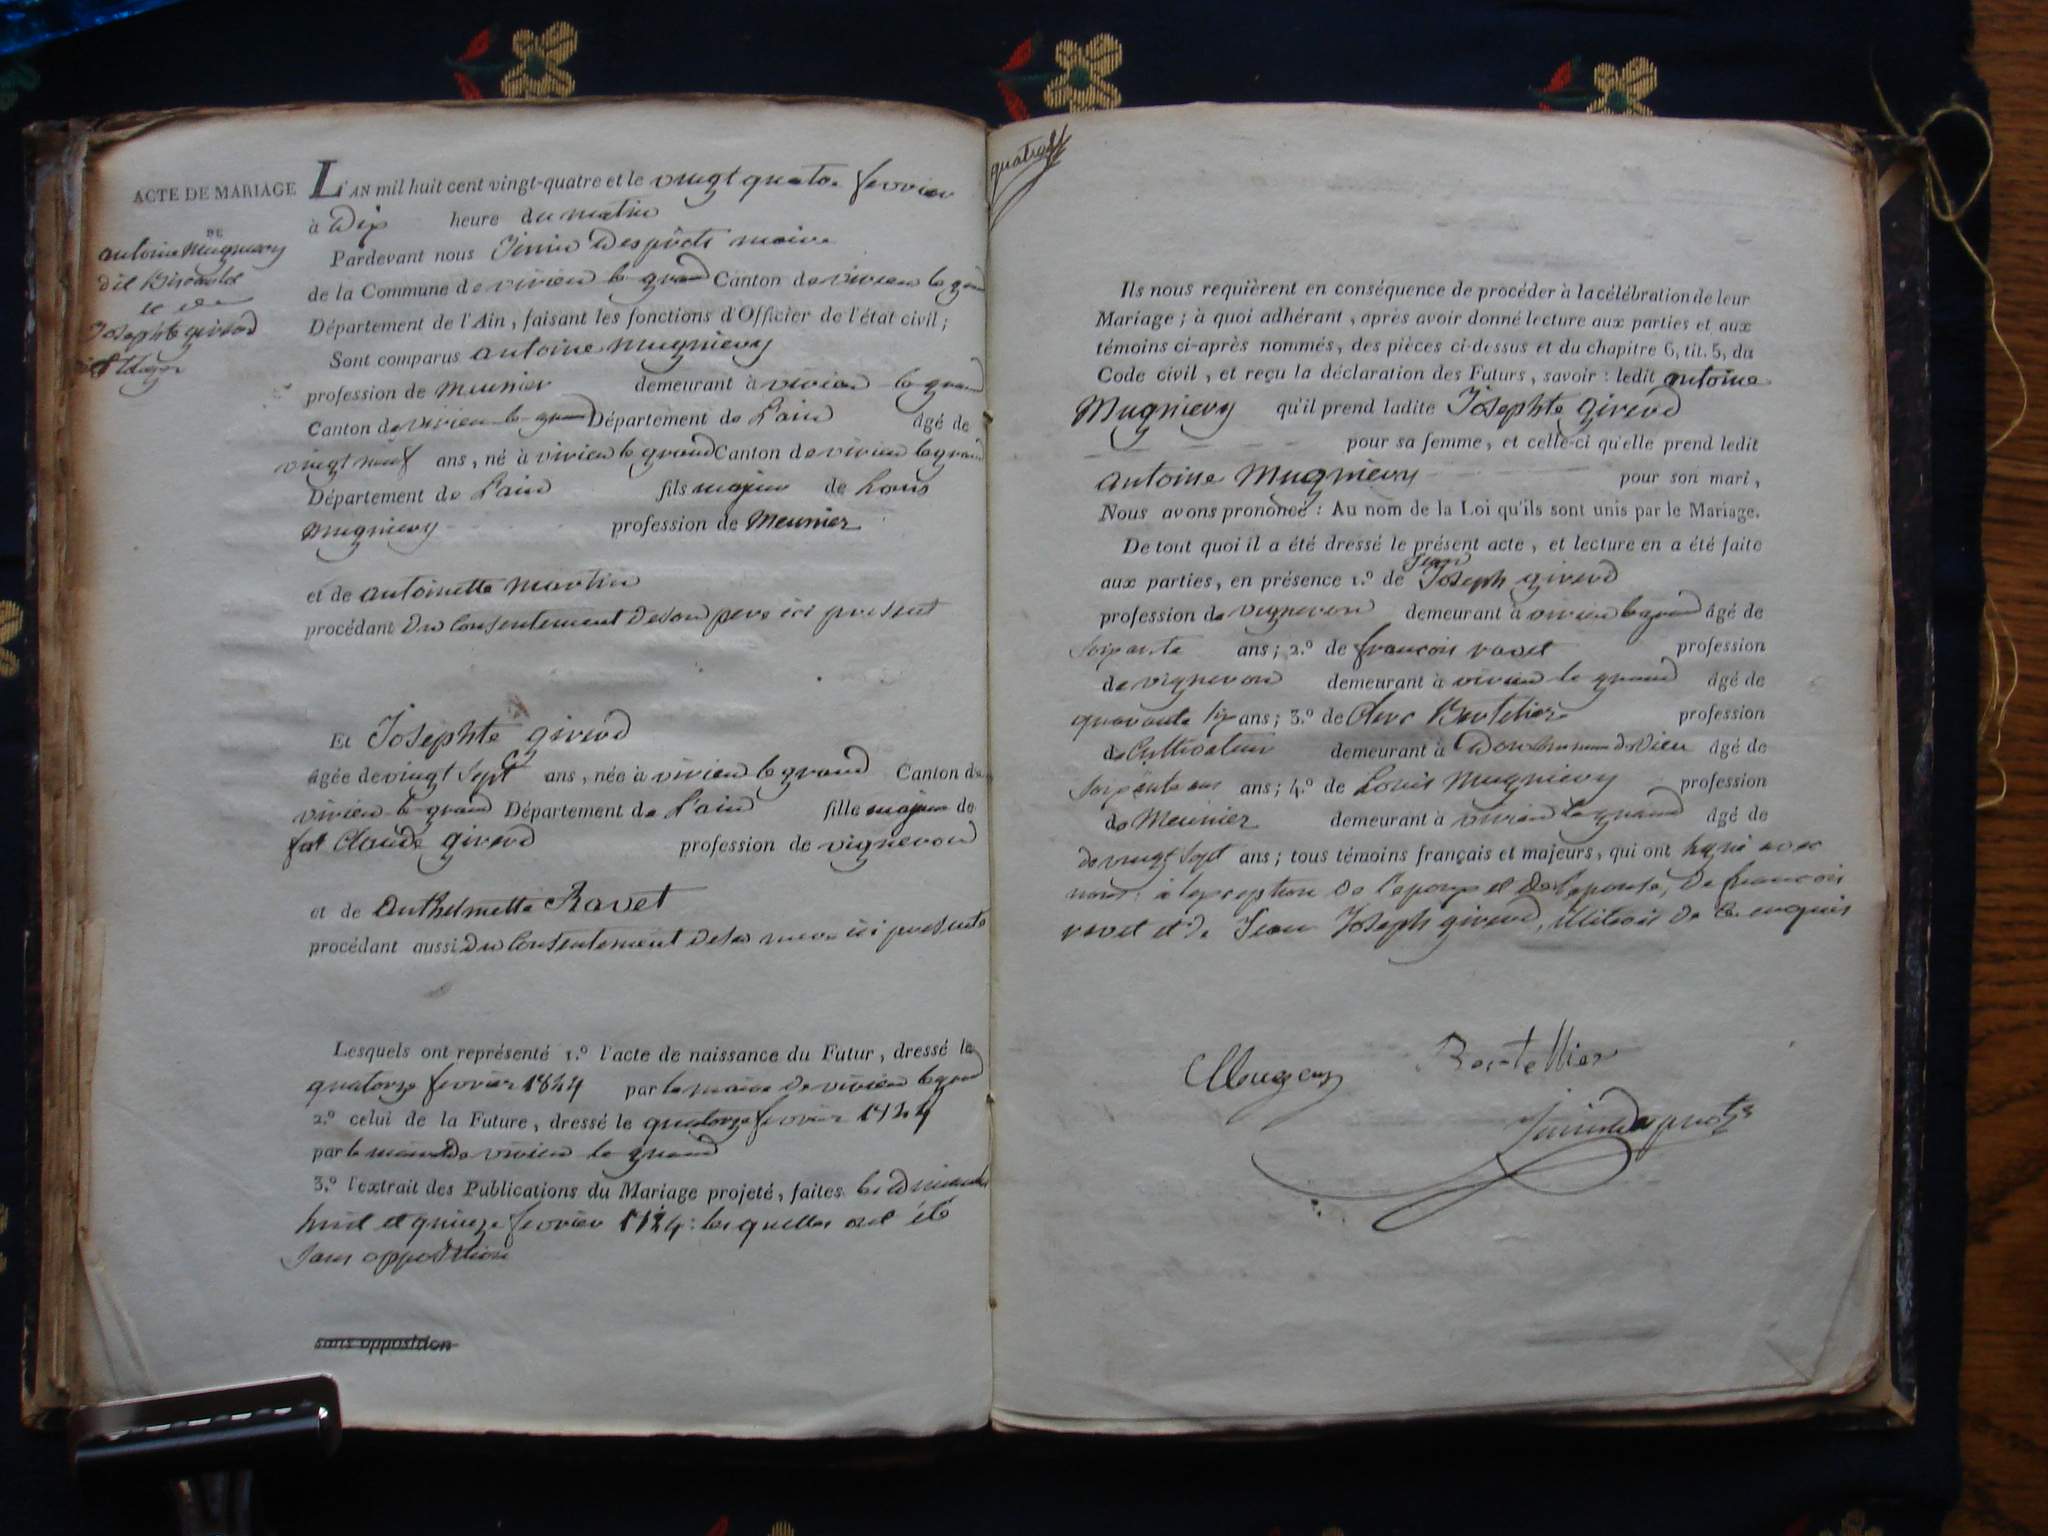 ACTE DE MARIAGE
DE
antoine Mugniery
dit
et de
Josephte girerd
L'AN mil huit cent vingt-quatre et le vingt quatre fevrier
à Dix heure du matin
Pardevant nous Jenin Desprots maire
de la Commune de virieu le grand Canton de virieu le grand
Département de l'Ain, faisant les fonctions d'Officier de l'état civil;
Sont comparus antoine Mugniery
profession de meunier demeurant à virieu le grand
Canton de virieu le grand Département de L'ain âgé de
vingt neuf ans, né à virieu le grand Canton de virieu le grand
Département de L'ain fils majeur de Louis
Mugniery profession de Meunier
et de antoinette martin
procédant du Consentement de son pere ici présent
Et Josephte girerd
âgée de vingt sept ans, née à virieu le grand Canton de
virieu le grand Département de L'ain fille majeure de
feu Claude girerd profession de vigneron
et de Anthelmette Ravet
procédant aussi du Consentement de sa mere ici presente
Lesquels ont représenté 1.º l'acte de naissance du Futur, dressé le
quatorze fevrier 1824 par le maire de virieu le grand
2.º celui de la Future, dressé le quatorze fevrier 1824
par le maire de virieu le grand
3.º l'extrait des Publications du Mariage projeté, faites les dimanches
huit et quinze fevrier 1824: les quelles ont été
sans opposition
sans opposition
quatre
Ils nous requièrent en conséquence de procéder à la célébration de leur
Mariage; à quoi adhérant, après avoir donné lecture aux parties et aux
témoins ci-après nommés, des pièces ci-dessus et du chapitre 6, tit. 5, du
Code civil, et reçu la déclaration des Futurs, savoir: ledit antoine
Mugniery qu'il prend ladite Josephte girerd
pour sa femme, et celle-ci qu'elle prend ledit
antoine Mugniery pour son mari,
Nous avons prononcé: Au nom de la Loi qu'ils sont unis par le Mariage.
De tout quoi il a été dressé le présent acte, et lecture en a été faite
Jean
aux parties, en présence 1.º de Joseph girerd
profession de vigneron demeurant à virieu le grand âgé de
soixante ans; 2.º de francois ravet profession
de vigneron demeurant à virieu le grand âgé de
quarante six ans; 3.º de Bertelier profession
de Cultivateur demeurant à âgé de
soixante ans; 4.º de Louis Mugniery profession
de Meunier demeurant à virieu le grand âgé de
de vingt sept ans; tous témoins français et majeurs, qui ont signé avec
nous à l'exception de l'epoux et de l'epouse, de francois
ravet et de Jean Joseph girerd, illitérés de ce enquis
Bertellier
Jenin Desprots